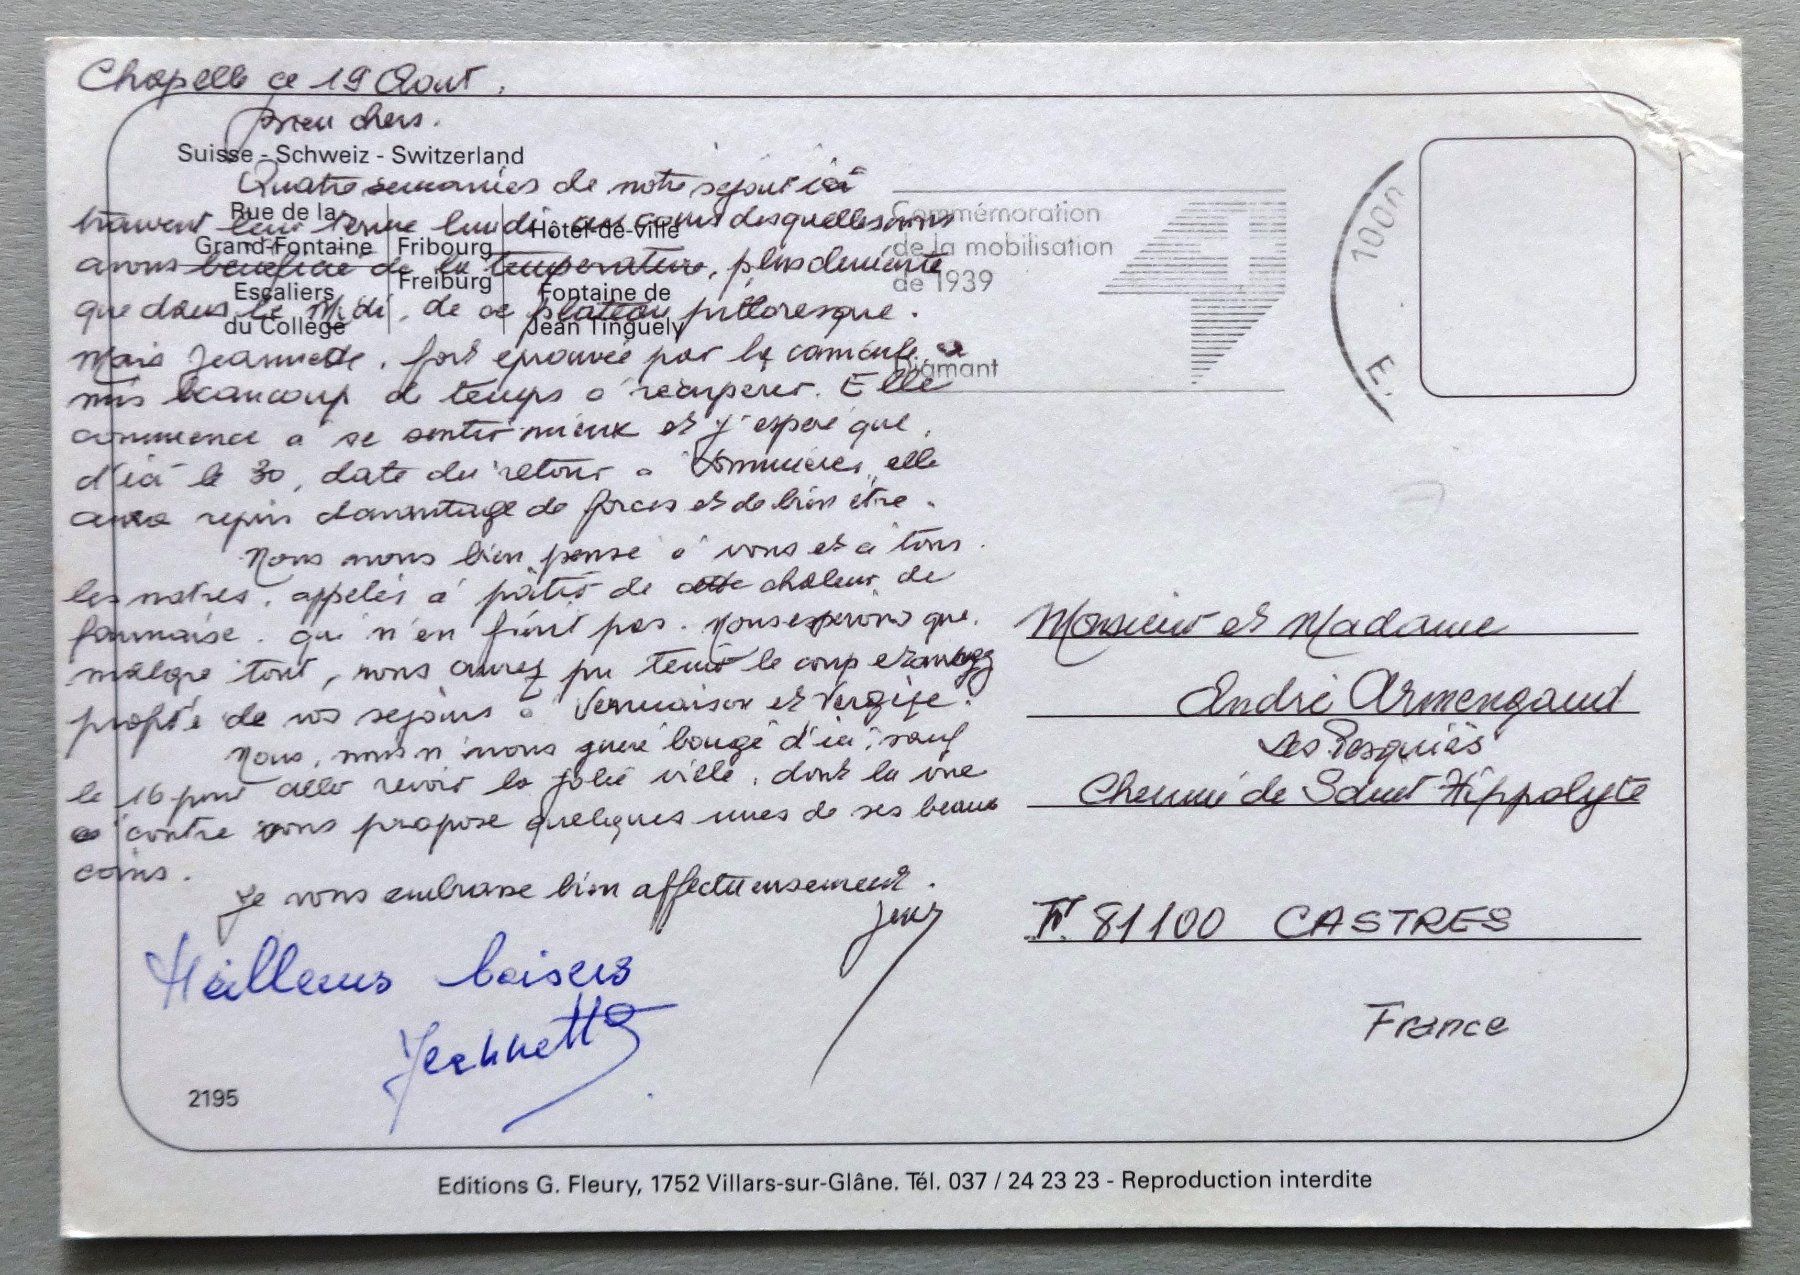 Chapelle ce 19 Aout.
Bien chers.
Suisse - Schweiz - Switzerland
Quatre semaines de notre séjour ici
trouvent leur terme lundi, au cours desquelles nous
avons bénéficié de la température, plus clémente
que dans le Midi, de ce plateau pittoresque.
Mais Jeannette, fort éprouvée par la canicule a
mis beaucoup de temps a récupérer. Elle
commence a se sentir mieux et j'espère que,
d'ici le 30, date du retour a Sommières, elle
aura repris davantage de forces et de bien être.
Nous avons bien pensé à vous et à tous
les notres, appelés à pâtir de cette chaleur de
fournaise, qui n'en finit pas. Nous espérons que,
malgré tout, vous aurez pu tenir le coup et
profité de vos séjours à Vernaison et Vergèze.
Nous, nous n'avons guère bougé d'ici, sauf
le 16 pour aller revoir la jolie ville, dont la vue
ci contre vous propose quelques unes de ses beaux
coins.
Je vous embrasse bien affectueusement.
Meilleurs baisers
Jeannette
Rue de la
Grand-Fontaine
Fribourg
Freiburg
Hôtel-de-Ville
Escaliers
du Collège
Fontaine de
Jean Tinguely
Commémoration
de la mobilisation
de 1939
Diamant
1000
E.
Monsieur et Madame
André Armengaud
Les
Chemin de Saint Hippolyte
F. 81100 CASTRES
France
2195
Editions G. Fleury, 1752 Villars-sur-Glâne. Tél. 037 / 24 23 23 - Reproduction interdite